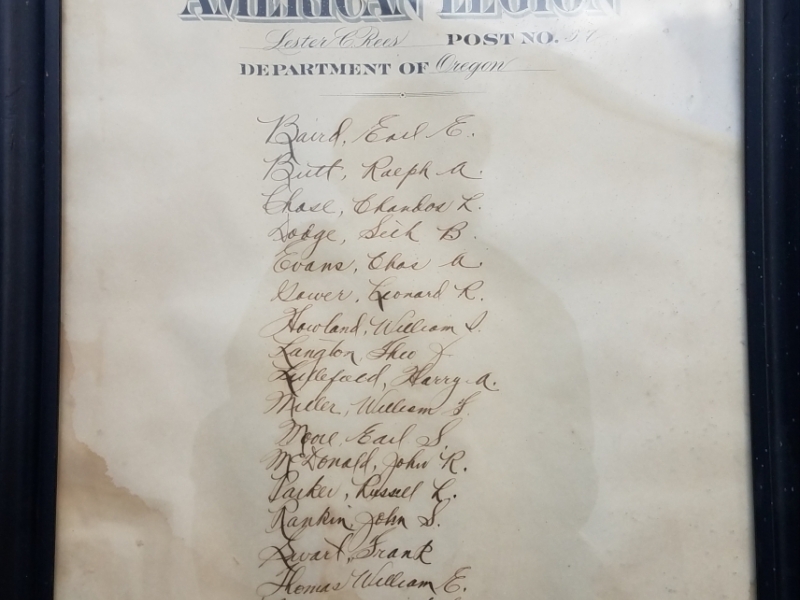 AMERICAN LEGION
Lester C Rees POST NO.
DEPARTMENT OF Oregon
Baird, Earl E.
Butt, Ralph A.
Chase, Chandos L.
Dodge, Seth B.
Evans, Chas A.
Gower, Leonard R.
Howland, William S.
Langton, Theo J
Littlefield, Harry A.
Miller, William F.
Moore, Earl S.
McDonald, John R.
Parker, Russel L.
Rankin, John S.
Swart, Frank
Thomas William E.